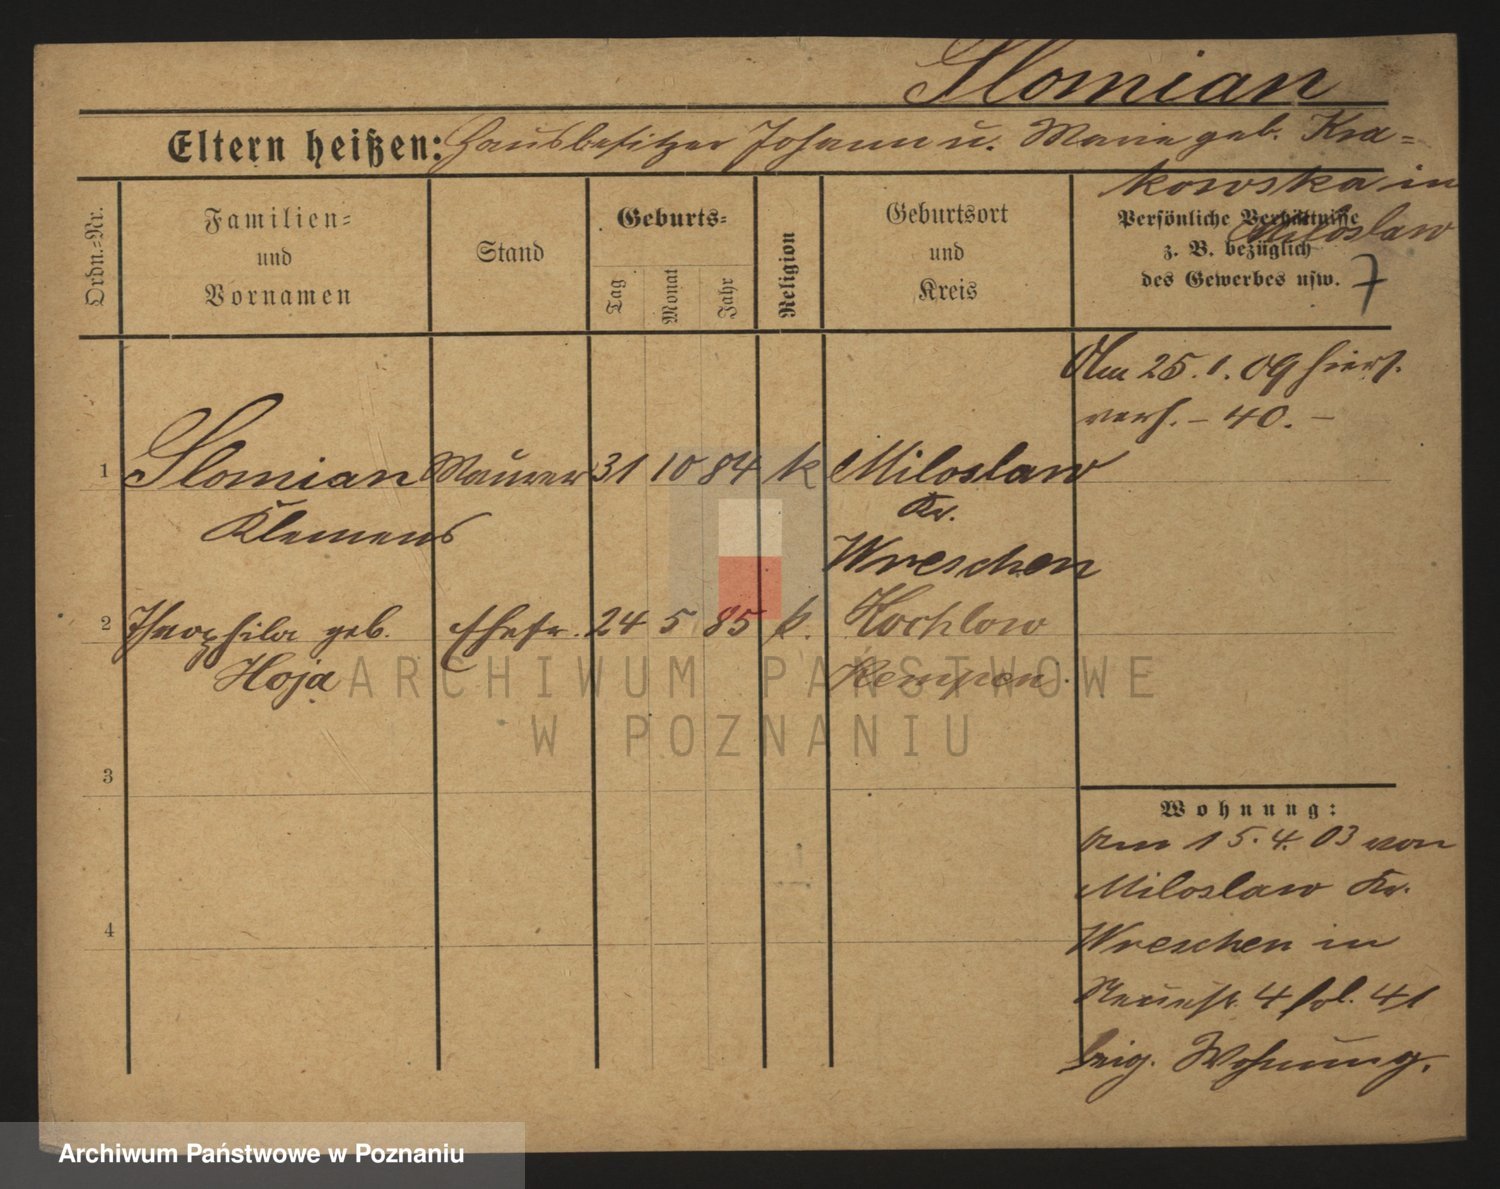 Slomian
Eltern heißen: Hausbesitzer Johann u. Marie geb. Kra=
kowska in
Miloslaw
Ordn.=Nr.
Familien=
und
Vornamen
Stand
Geburts=
Tag
Monat
Jahr
Religion
Geburtsort
und
Kreis
Persönliche Verhältnisse
z. B. bezüglich
des Gewerbes usw.
7
Am 25.1.09 hiers.
verh. – 40. –
1 Slomian Maurer 31 10 84 k Miloslaw
Klemens Kr.
Wreschen
2 Theophila geb. Ehefr. 24 5 85 k. Kochlow
Hoja Kempen.
3
4
Wohnung:
Am 15.4.03 von
Miloslaw Kr.
Wreschen in
4 fol. 41
eig. Wohnung.
ARCHIWUM PAŃSTWOWE
W POZNANIU
Archiwum Państwowe w Poznaniu